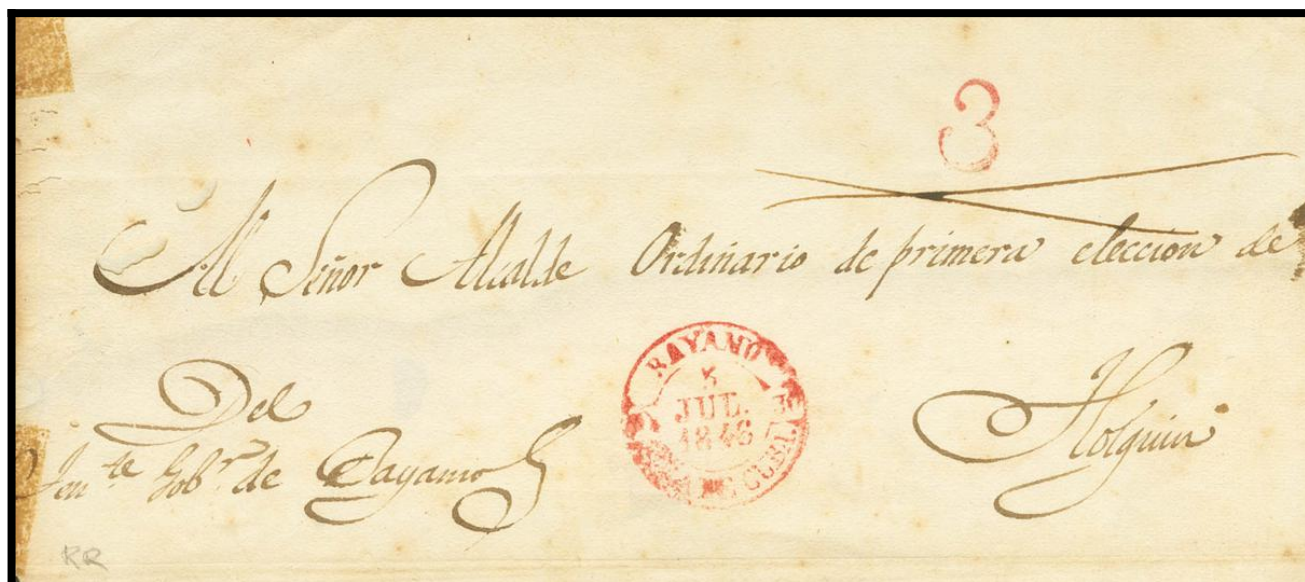 3
Al Señor Alcalde Ordinario de primera eleccion de
BAYAMO
5
JUL.
1846
CUBA.
Holguin
Del
Ten.te Gob.r de Bayamo
RR